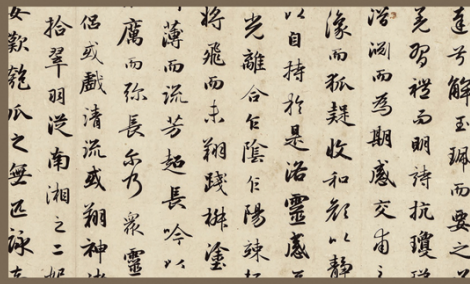 達兮解玉珮而要之
羌習禮而明詩抗瓊
淵而為期感交甫之
豫而狐疑收和顏以靜
以自持於是洛靈感焉
光離合乍陰乍陽竦
將飛而未翔踐椒塗
薄而流芳超長吟以
厲而弥長爾乃眾靈
侶或戲清流或翔神渚
拾翠羽從南湘之二妃
女歎匏瓜之無匹詠